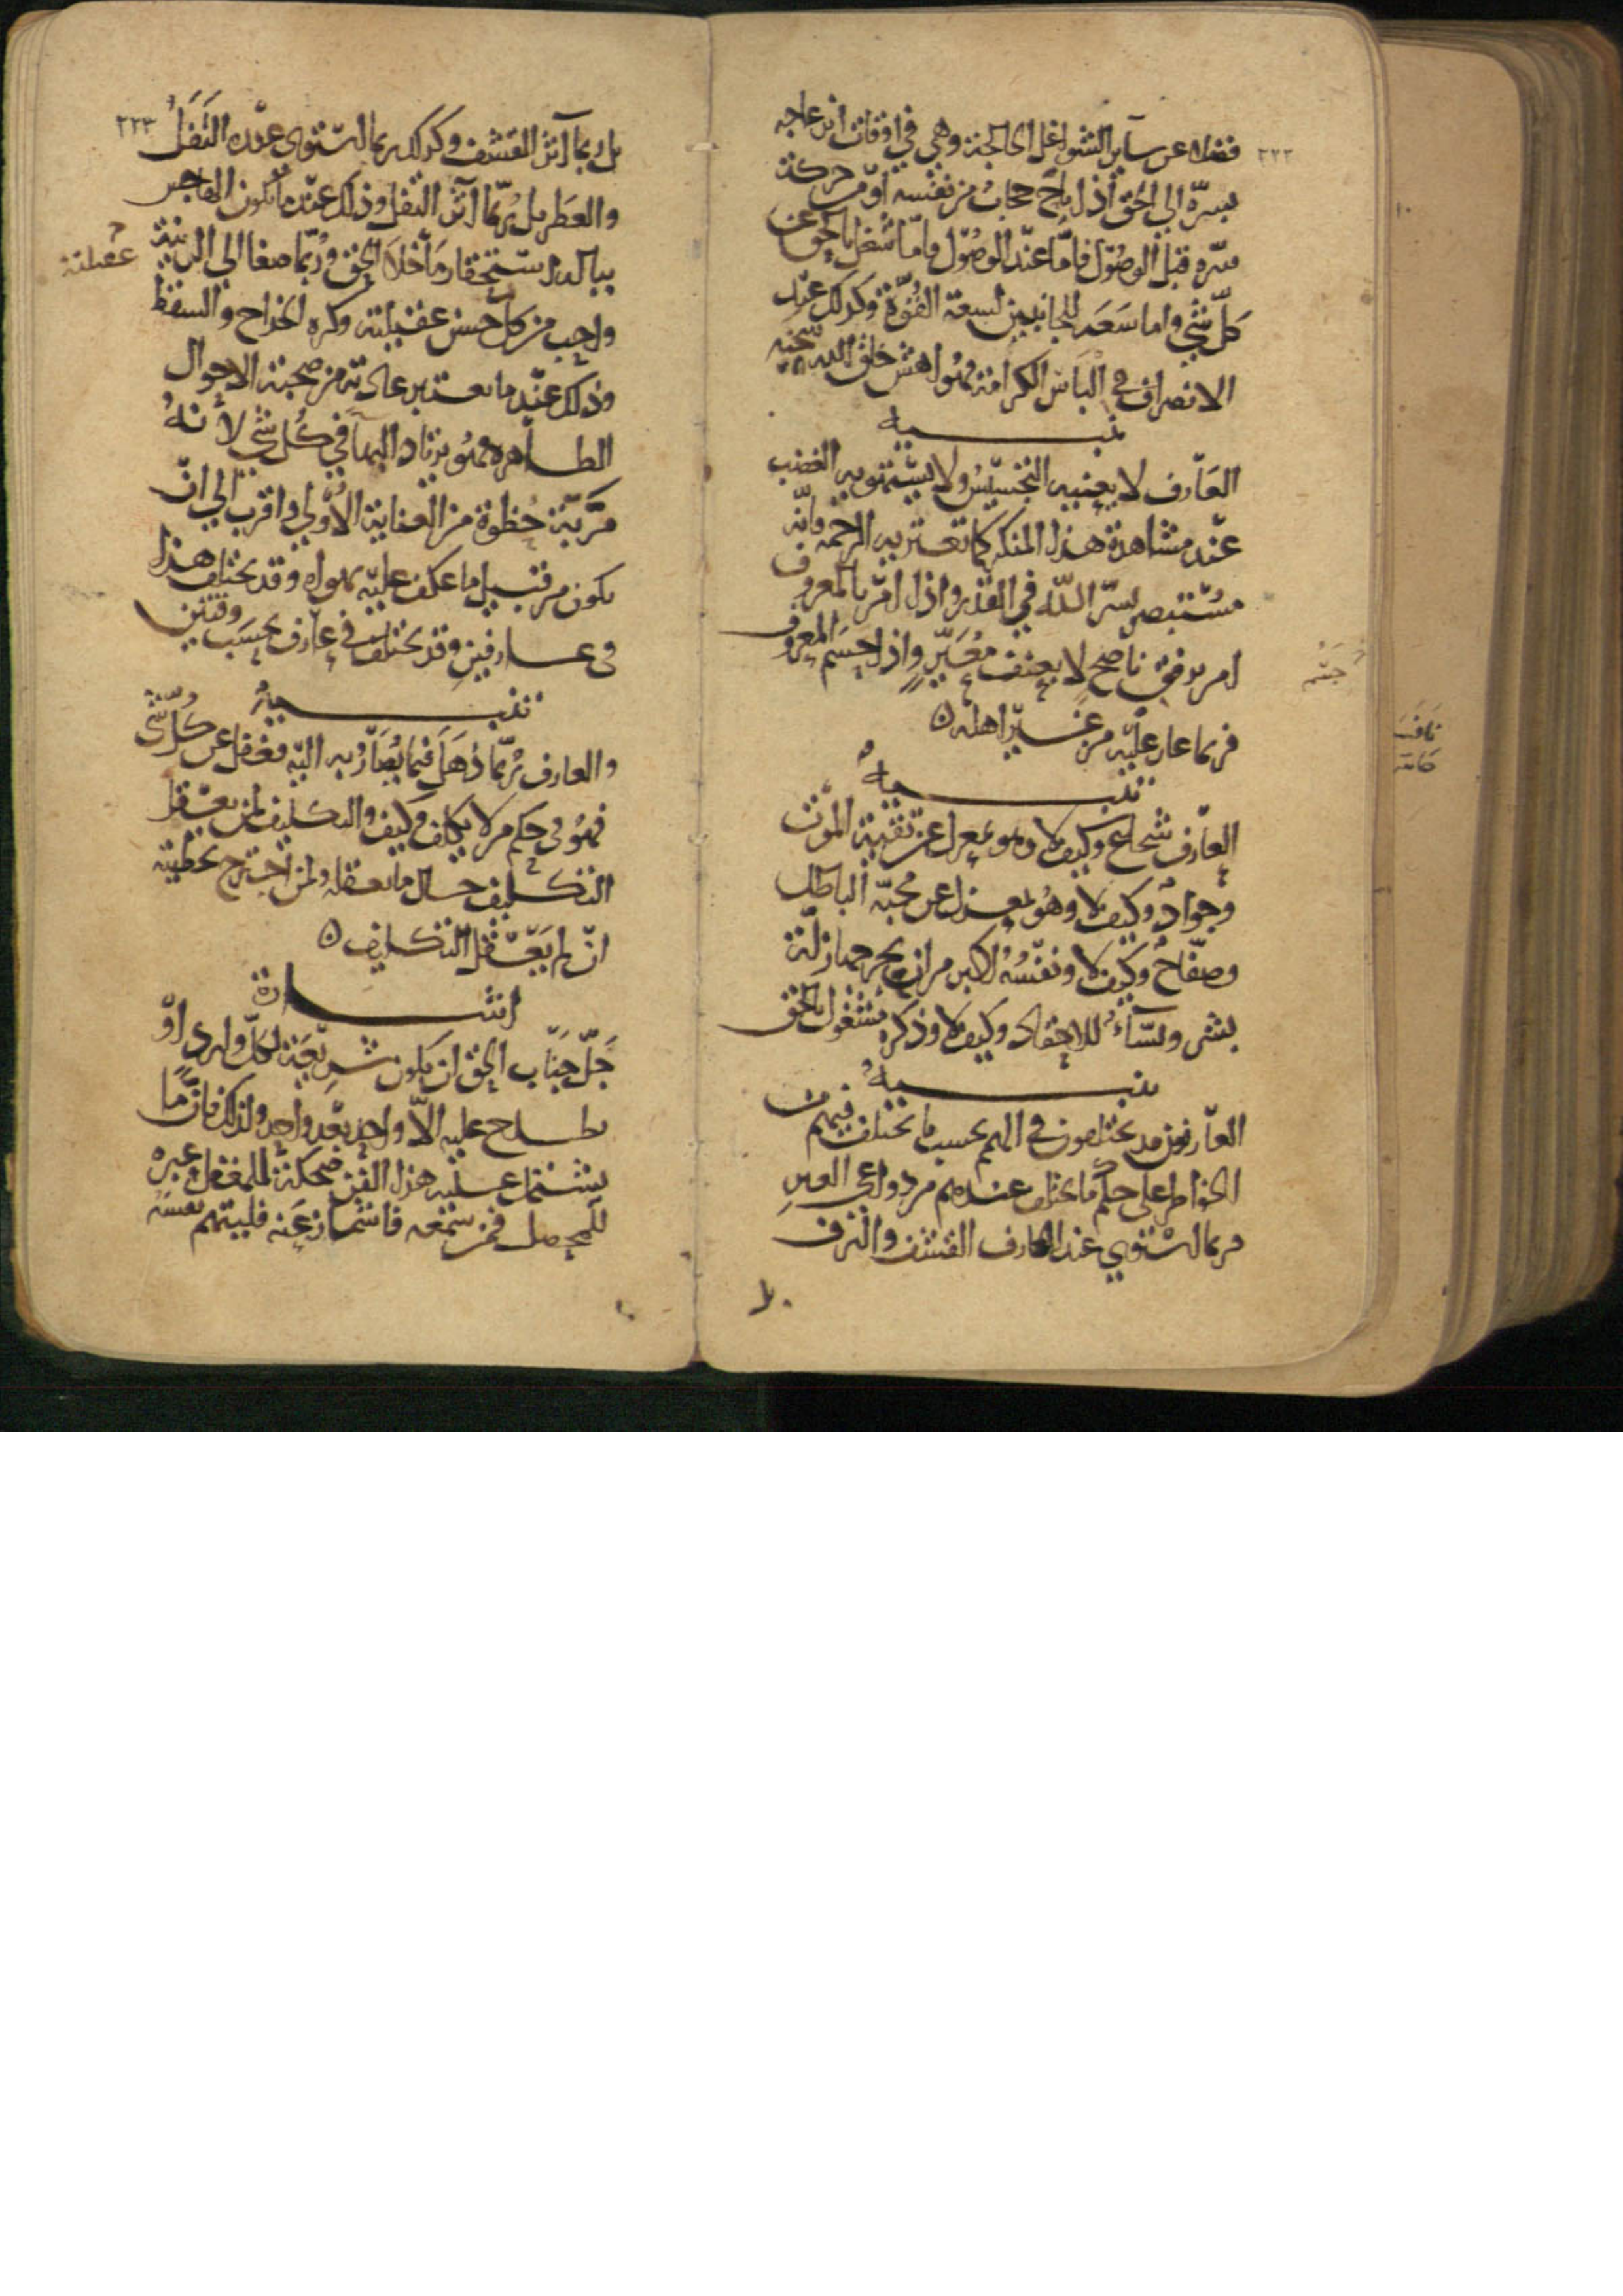 ٢٢٢
فضلا عن سآير الشواغل الخالجة وهي في اوقات انزعاجه
بسرّه الي الحق اذا تاح حجاب من نفسه او من حركة
سرّه قبل الوصول فامّا عند الوصول فامّا شغل بالحق عن
كل شي واما سعة للجانبين لسعة القوّة وكذلك عند
الانصراف في لباس الكرامة فهو اهش خلق الله ببهجته
تنبيه
العارف لا يعنيه التجسّس ولا يستهويه الغضب
عند مشاهدة هذا المنكر كما تعتريه الرحمة فانه
مستبصر بسرّ الله في القدر واذا امر بالمعروف
امر برفق ناصح لا بعنف معيّر واذا جسم المعروف
فربما غار عليه من غير اهله ه
تنبيه
العارف شجاع وكيف لا وهو بمعزل عن تقية الموت
وجواد وكيف لا وهو بمعزل عن محبة الباطل
وصفّاح وكيف لا ونفسه اكبر من ان يجرحها زلّة
بشر ونسّآء للاحقاد وكيف لا وذكره مشغول بالحق
تنبيه
العارفون قد يختلفون في الهمم بحسب ما يختلف فيهم من
الخواطر علي حكم ما يختلف عندهم من دواعي العبر
فربما استوي عند العارف القشف والترف
بل
٢٢٣
بل ربما آثر القشف وكذلك ربما استوى عنده التفل
والعطر بل ربّما آثر التفل وذلك عند ما يكون الهاجس
بباله استحقار ما خلا الحق وربّما صغا الي الزينة
واحب من كل جنس عقيلته وكره الخداج والسقط
وذلك عند ما يعتبر عادته من صحبة الاحوال
الظاهره فهو يرتاد البهآ في كل شي لانه
مزيّة حُظوة من العناية الاولي واقرب الي ان
يكون من قبيل ما عكف عليه بهواه وقد يختلف هذا
في عارفين وقد يختلف في عارف بحسب وقتين
تنبيه
والعارف ربّما ذهل فيما يُصار به اليه فغفل عن كل شي
فهو في حكم من لا يكلف وكيف والتكليف لمن يعقل
التكليف حال ما يعقله ولمن اجترح بخطيئته
ان لم يعقل التكليف ه
اشارة
جلّ جناب الحق ان يكون شريعة لكل وارد او
يطلع عليه الا واحد بعد واحد ولذلك فان ما
يشتمل عليه هذا الفن ضحكة للمغفل وعبره
للمحصل فمن سمعه فاشمأز عنه فليتهم نفسه
عقيلته